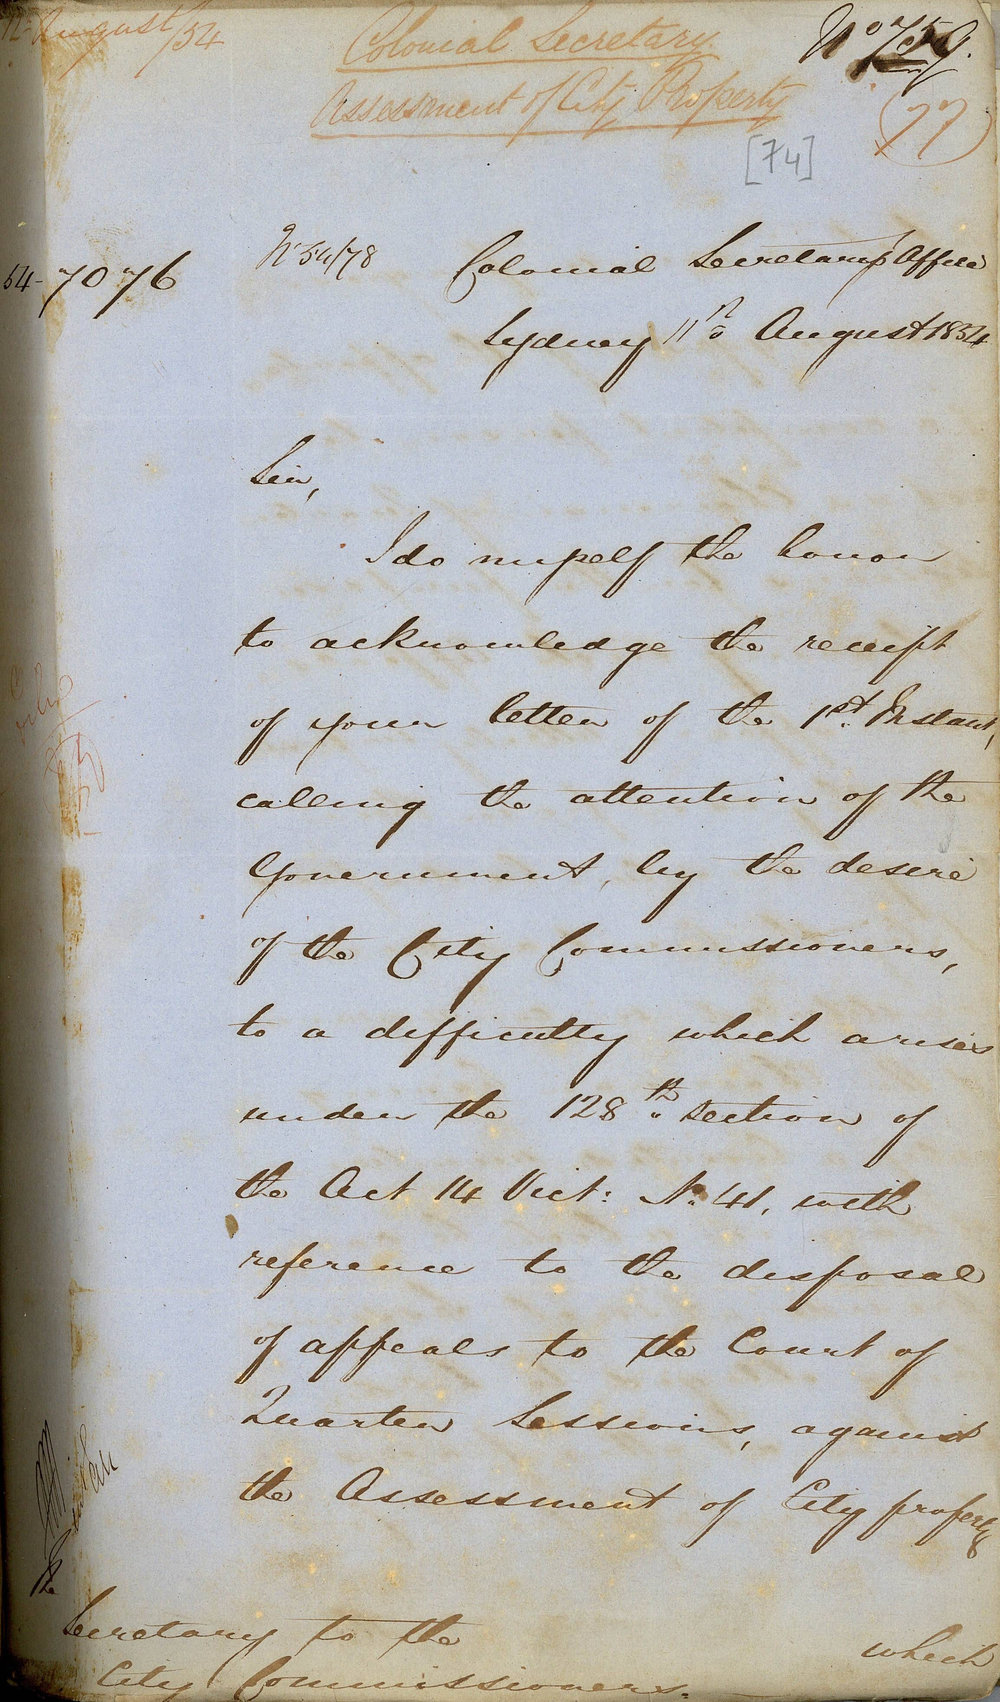 12 August/54
Colonial Secretary
Assessment of City Property
No 759.
(77)
[74]
54-7076
No 54/78
Colonial Secretary's Office
Sydney 11th August 1854
Sir,
I do myself the honor
to acknowledge the receipt
of your letter of the 1st Instant,
calling the attention of the
Government, by the desire
of the City Commissioners,
to a difficulty which arises
under the 128th section of
the Act 14 Vict: No. 41, with
reference to the disposal
of appeals to the Court of
Quarter Sessions, against
the Assessment of City property
which
The
Secretary to the
City Commissioners.